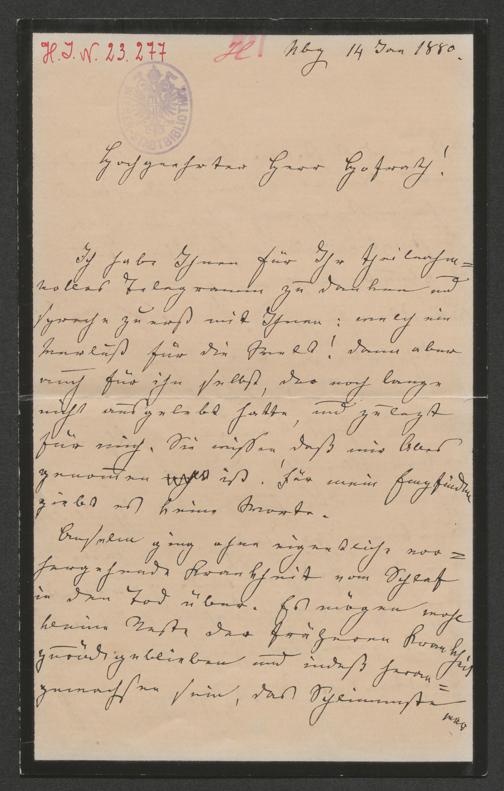 H. I. N. 23.277
Nbg 14 Jan 1880.
Hochgeehrter Herr Hofrath!
Ich habe Ihnen für Ihr theilnahm=
volles Telegramm zu danken und
spreche zuerst mit Ihnen: welch ein
Verlust für die Welt! dann aber
auch für ihn selbst, der noch lange
nicht ausgelebt hatte, und zuletzt
für mich. Sie wissen daß mir Alles
genommen ist. Für mein Empfinden
giebt es keine Worte.
Anselm ging ohne eigentliche vor=
hergehende Krankheit vom Schlaf
in den Tod über. Es mögen wohl
kleine Reste der früheren Krankheit
zurückgeblieben und indeß heran=
gewachsen sein, das Schlimmste war